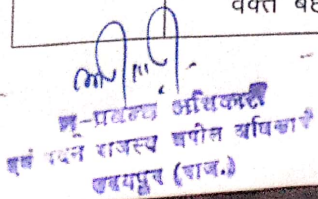 वक्त
भू-प्रबन्ध अधिकारी
एवं पदेन राजस्व अपील अधिकारी
उदयपुर (राज.)